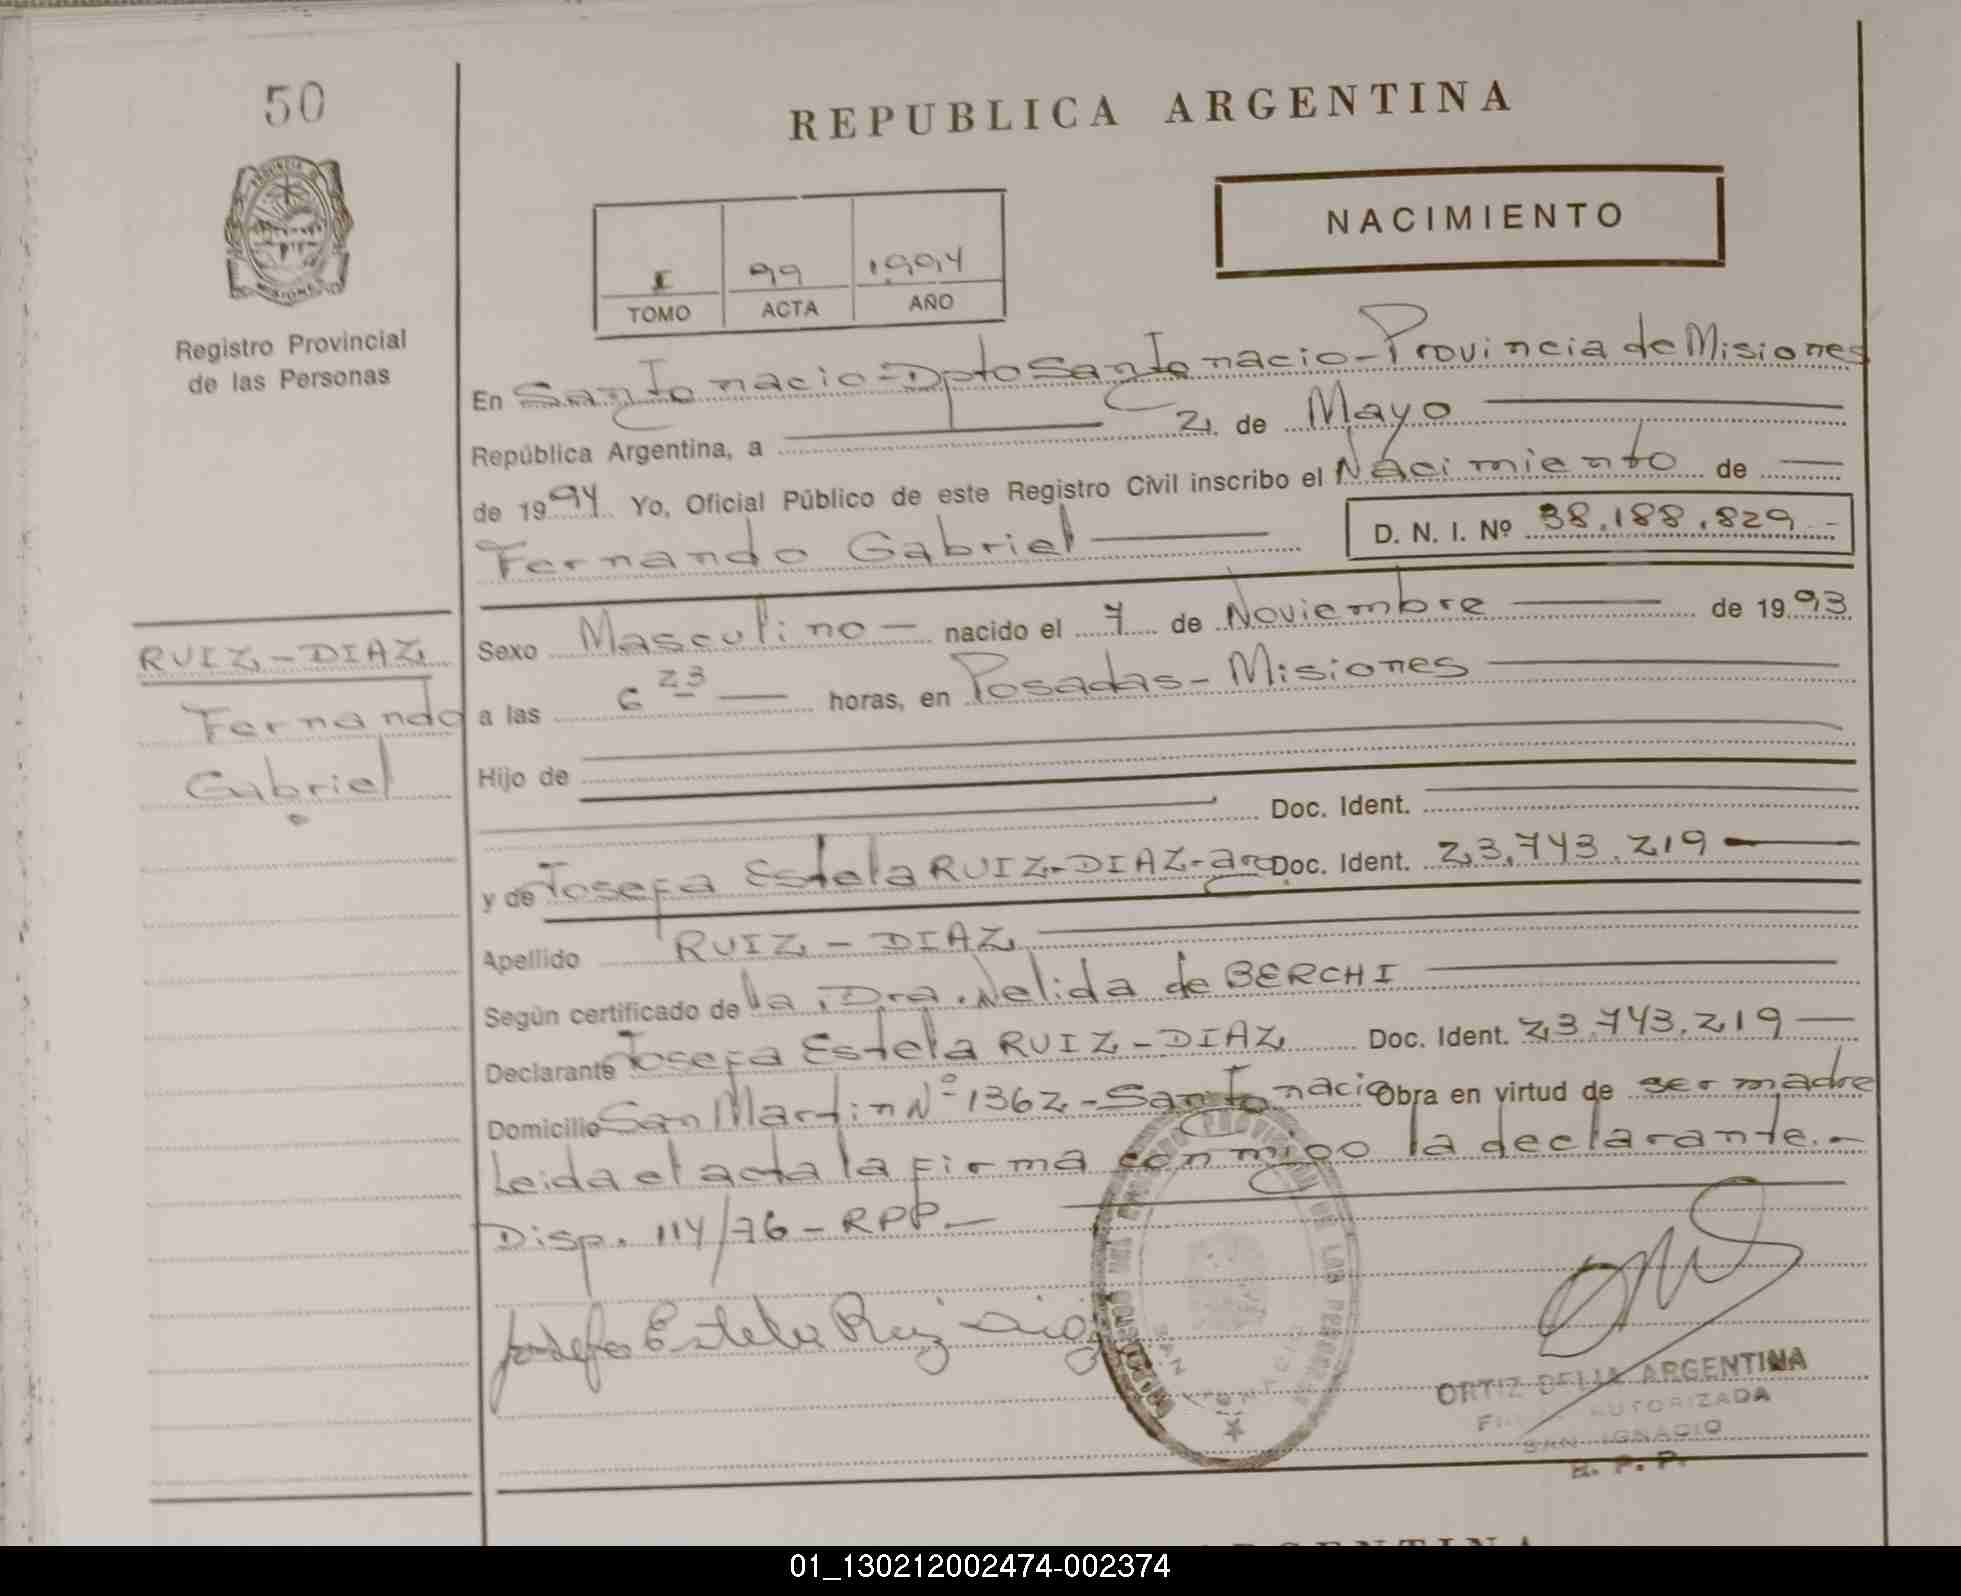 50
REPUBLICA ARGENTINA
NACIMIENTO
I 99 1994
TOMO ACTA AÑO
Registro Provincial
de las Personas
En San Ignacio - Dpto San Ignacio - Provincia de Misiones
República Argentina, a 21 de Mayo
de 1994 Yo, Oficial Público de este Registro Civil inscribo el Nacimiento de
Fernando Gabriel D. N. I. Nº 38.188.829 -
RUIZ - DIAZ
Fernando
Gabriel
Sexo Masculino - nacido el 7 de Noviembre de 1993
a las 6 23 horas, en Posadas - Misiones
Hijo de
Doc. Ident.
y de Josefa Estela RUIZ - DIAZ - Doc. Ident. 23.743.219
Apellido RUIZ - DIAZ
Según certificado de la Dra. Nelida de BERCHI
Declarante Josefa Estela RUIZ - DIAZ Doc. Ident. 23.743.219
Domicilio San Martin Nº 1362 - San Ignacio Obra en virtud de ser madre
Leida el acta la firma conmigo la declarante. -
Disp. 114/76 - RPP. -
Josefa Estela Ruiz Diaz
SAN IGNACIO
ORTIZ DELIA ARGENTINA
AUTORIZADA
SAN IGNACIO
R. P. P.
ARGENTINA
01_130212002474-002374